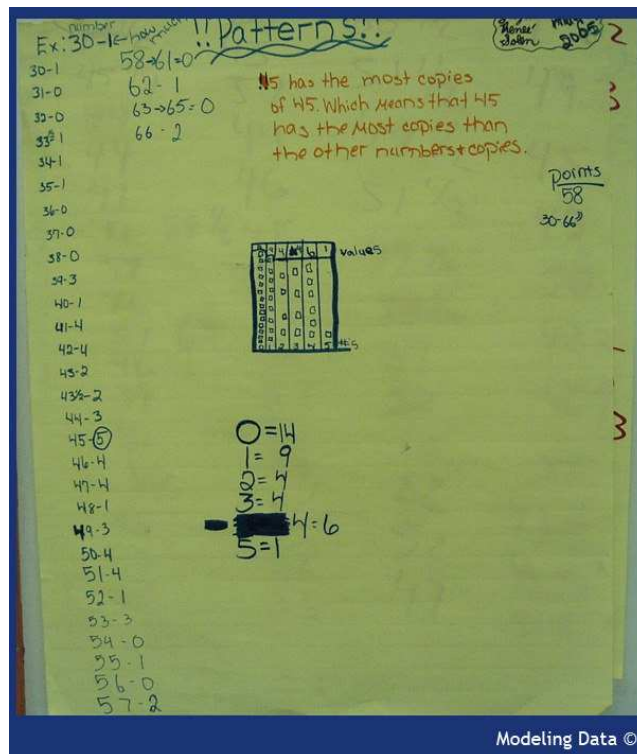 !!Patterns!!
number
Ex: 30-1
30-1
31-0
32-0
33-1
34-1
35-1
36-0
37-0
38-0
39-3
40-1
41-4
42-4
43-2
43½-2
44-3
45-5
46-4
47-4
48-1
49-3
50-4
51-4
52-1
53-3
54-0
55-1
56-0
57-2
58→61=0
62-1
63→65=0
66-2
45 has the most copies
of 45. Which Means that 45
has the Most copies than
the other numbers+copies.
Renee
2005
points
58
30-66
values
0=14
1=9
2=4
3=4
4=6
5=1
Modeling Data ©